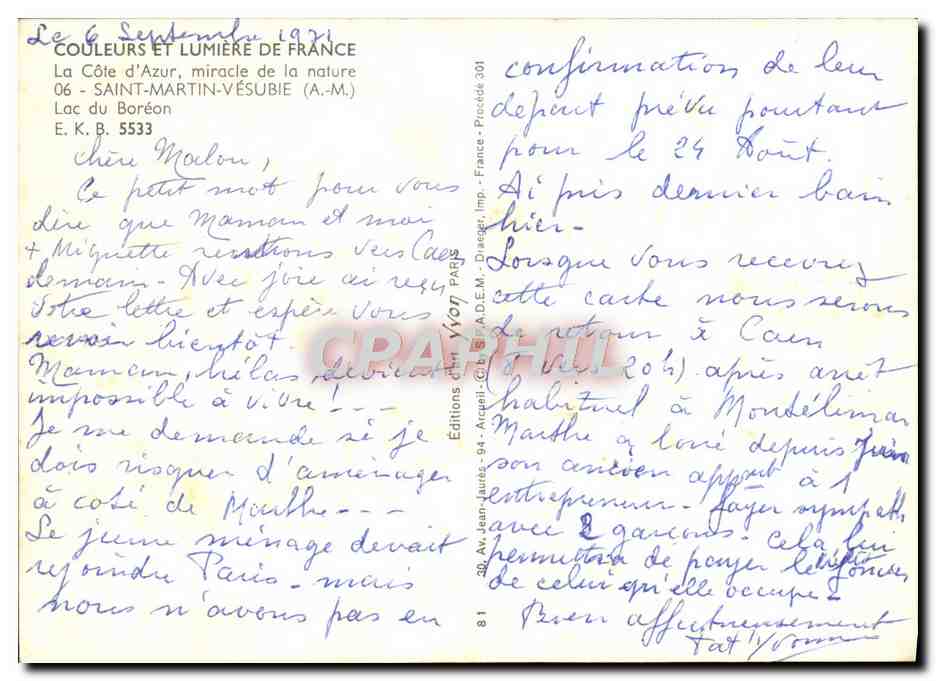 Le 6 Septembre 1971
COULEURS ET LUMIÈRE DE FRANCE
La Côte d'Azur, miracle de la nature
06 - SAINT-MARTIN-VÉSUBIE (A.-M.)
Lac du Boréon
E. K. B. 5533
chère Malou,
Ce petit mot pour vous
dire que Maman et moi
+ Miquette rentrons vers Caen
demain. Avec joie ai reçu
votre lettre et espère vous
revoir bientôt.
Maman, hélas, devient
impossible à vivre! - - -
Je me demande si je
dois risquer d'aménager
à coté de Marthe - - -
Le jeune ménage devait
rejoindre Paris - mais
nous n'avons pas eu
confirmation de leur
depart prévu pourtant
pour le 24 Août.
Ai pris dernier bain
hier -
Lorsque vous recevrez
cette carte nous serons
de retour à Caen
(8 vers 20h) après arrêt
habituel à Montélimar
Marthe a loué depuis Juin
son ancien appart à 1
entrepreneur - foyer sympath
avec 2 garçons - cela lui
permettra de payer le
de celui qu'elle occupe -
Bien affectueusement
Tat' Yvonne
Editions d'art YVON PARIS
30, Av. Jean-Jaurès - 94 - Arcueil - (C) by S.P.A.D.E.M. - Draeger, Imp. - France - Procédé 301
81
CPARAPHIL